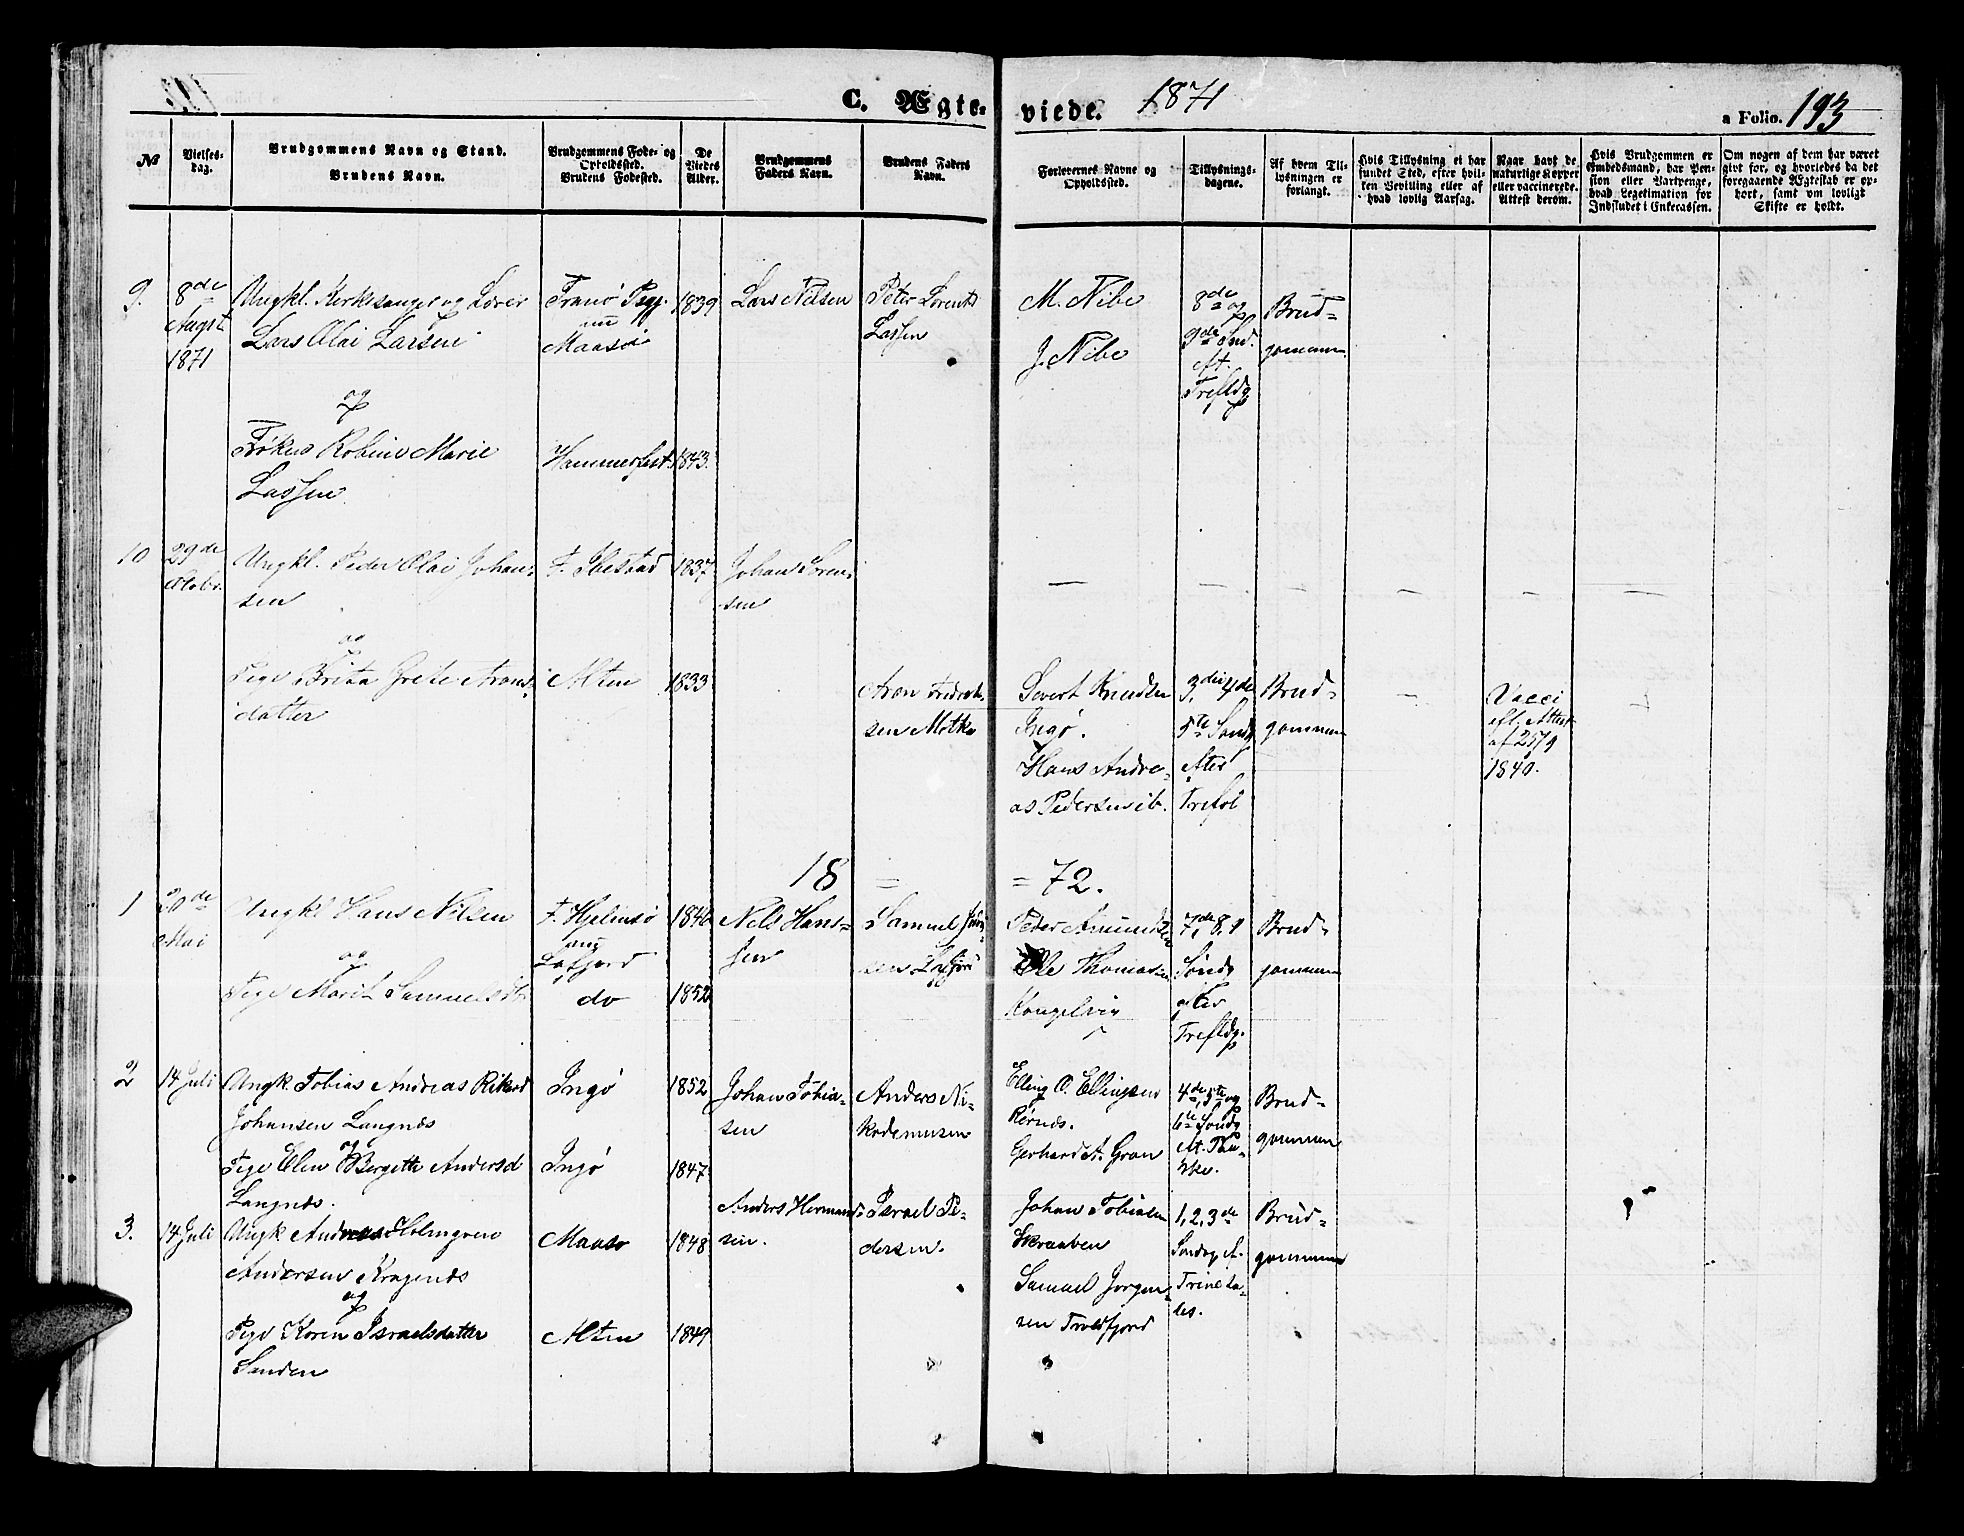 C. Ægte-
viede. 1871
a Folio. 193
No
Vielses-
dag.
Brudgommens Navn og Stand.
Brudens Navn.
Brudgommens Føde- og
Opholdssted.
Brudens Fødested.
De
Viedes
Alder.
Brudgommens
Faders Navn.
Brudens Faders
Navn.
Forlovernes Navne og
Opholdssted.
Tillysnings-
dagene.
Af hvem Til-
lysningen er
forlangt.
Hvis Tillysning ei har
fundet Sted, efter hvil-
ken Bevilling eller af
hvad lovlig Aarsag.
Naar havt de
naturlige Kopper
eller vaccinerede.
Attest derom.
Hvis Brudgommen er
Embedsmand, har Pen-
sion eller Vartpenge,
hvad Legitimation for
Indskudet i Enkecassen.
Om nogen af dem har været
gift før, og hvorledes da det
foregaaende Ægteskab er op-
hørt, samt om lovligt
Skifte er holdt.
9.
8de
Augst
1871
Ungkl. Kirkesanger og Lærer
Lars Olai Larsen
og
Frøken Robine Marie
Lassen
Tranø Pgj.
nu
Maasø
Hammerfest
1839
1843.
Lars Nilsen
Peter Lorents
Lassen
M. Nibe
J. Nibe
8de og
9de Snd.
eft.
Trefldg
Brud-
gommen
10
29de
Octobr.
Ungkl. Peder Olai Johan-
sen
og
Pige Brita Grete Arons-
datter
F. Ibestad
Alten
1837
1833
Johan Soren-
sen
Aron
sen Motka
Sivert Knudsen
Ingø.
Hans Andre-
as Pedersen ib.
3die 4de
5te Sondg
efter
Trefol
Brud-
gommen
Vacci
eft. Attest
af 25/9
1840.
18 = = 72.
1
20de
Mai
Ungkl Hans Nilsen
og
Pige Marit Samuelsdtr
F. Hjelmsø
Lafjord
do
1846
1852
Nils Han-
sen
Samuel
sen Lafjord
Peder Amundsen
Ole Thomassen
Kongelvig
7de, 8, 9
Søndg
efter
Trefldg.
Brud-
gommen
2
14 Juli
Ungk. Tobias Andreas Rikard
Johansen Langnæs
og
Pige Elen Bergette Andersd
Langnæs.
Ingø
Ingø
1852
1847
Johan Tobia-
sen
Anders Ni-
kodemusen
Elling O. Ellingsen
Rørnæs.
Gerhard A. Gran
4de, 5te og
6te Søndg
eft.
Brud-
gommen
3.
14 Juli
Ungk Andreas Holmgren
Andersen Kragenæs
og
Pige Karen Israelsdatter
Sanden
Maasø
Alten
1848
1849
Anders Herman-
sen.
Israel Pe-
dersen.
Johan Tobiasen
Skraaben
Samuel Jørgen-
sen Troldfjord
1, 2, 3de
Søndag eft.
Trineta-
tes.
Brud-
gommen